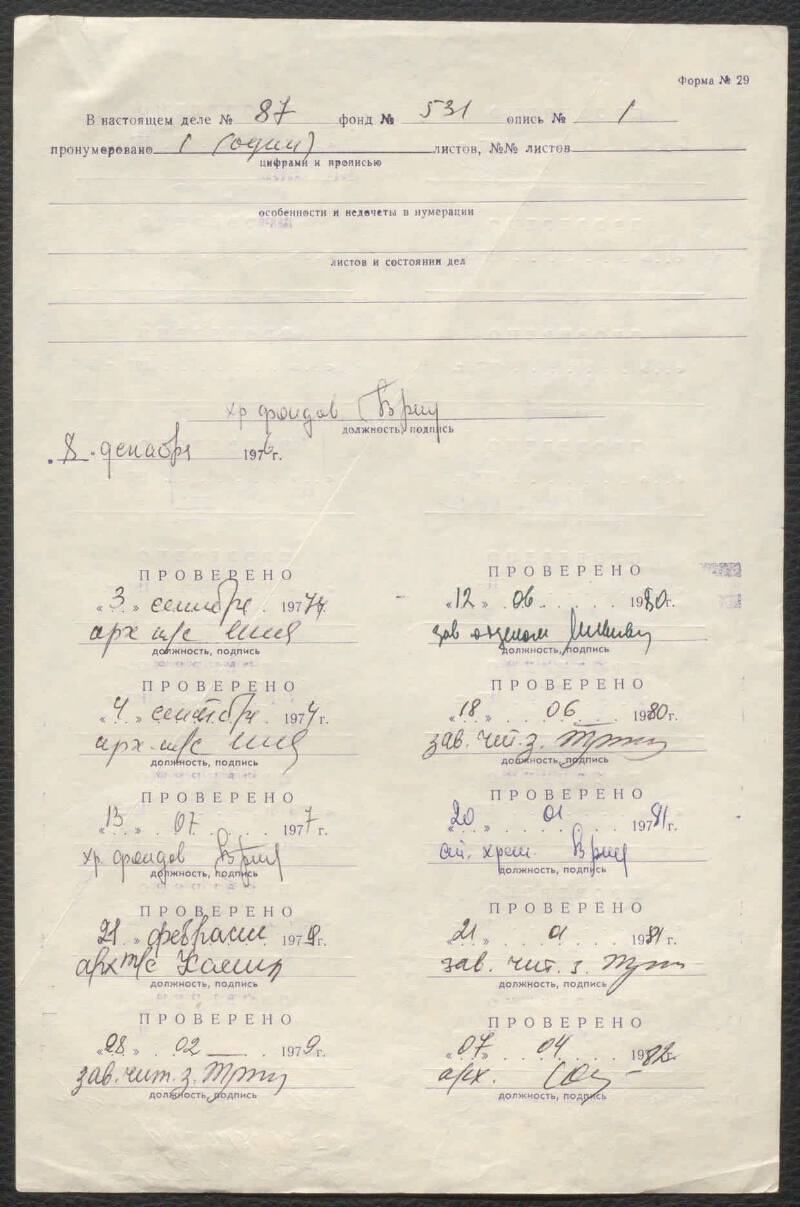 Форма № 29
В настоящем деле № 87 фонд № 531 опись № 1
пронумеровано 1 (один) листов, №№ листов
цифрами и прописью
особенности и недочеты в нумерации
листов и состоянии дел
хр фондов
должность, подпись
„8“ декабря 1976 г.
ПРОВЕРЕНО
«3» сентября 1977 г.
арх
должность, подпись
ПРОВЕРЕНО
«4» сентября 1977 г.
арх
должность, подпись
ПРОВЕРЕНО
«13» 07 1977 г.
хр. фондов
должность, подпись
ПРОВЕРЕНО
21 февраля 197 г.
арх
должность, подпись
ПРОВЕРЕНО
«28» 02 1979 г.
зав. чит. з.
должность, подпись
ПРОВЕРЕНО
«12» 06 1980 г.
зав отделом
должность, подпись
ПРОВЕРЕНО
«18» 06 1980 г.
зав. чит. з.
должность, подпись
ПРОВЕРЕНО
«20» 01 1981 г.
должность, подпись
ПРОВЕРЕНО
«21» 01 1981 г.
зав. чит. з.
должность, подпись
ПРОВЕРЕНО
«07» 04 1982 г.
арх.
должность, подпись